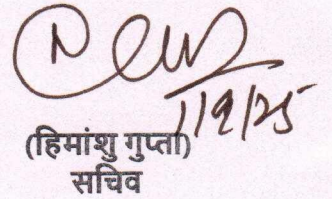 1/9/25
(हिमांशु गुप्ता)
सचिव